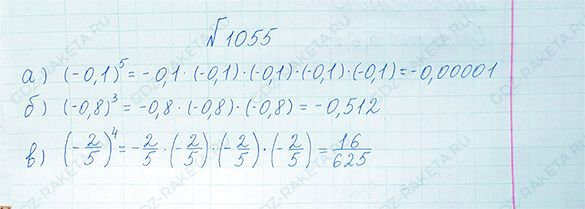 №1055
а) (-0,1)⁵ = -0,1 · (-0,1) · (-0,1) · (-0,1) · (-0,1) = -0,00001
б) (-0,8)³ = -0,8 · (-0,8) · (-0,8) = -0,512
в) (-2/5)⁴ = -2/5 · (-2/5) · (-2/5) · (-2/5) = 16/625
GDZ-RAKETA.RU